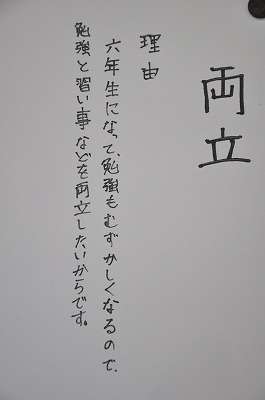 両立
理由
六年生になって、勉強もむずかしくなるので、
勉強と習い事などを両立したいからです。